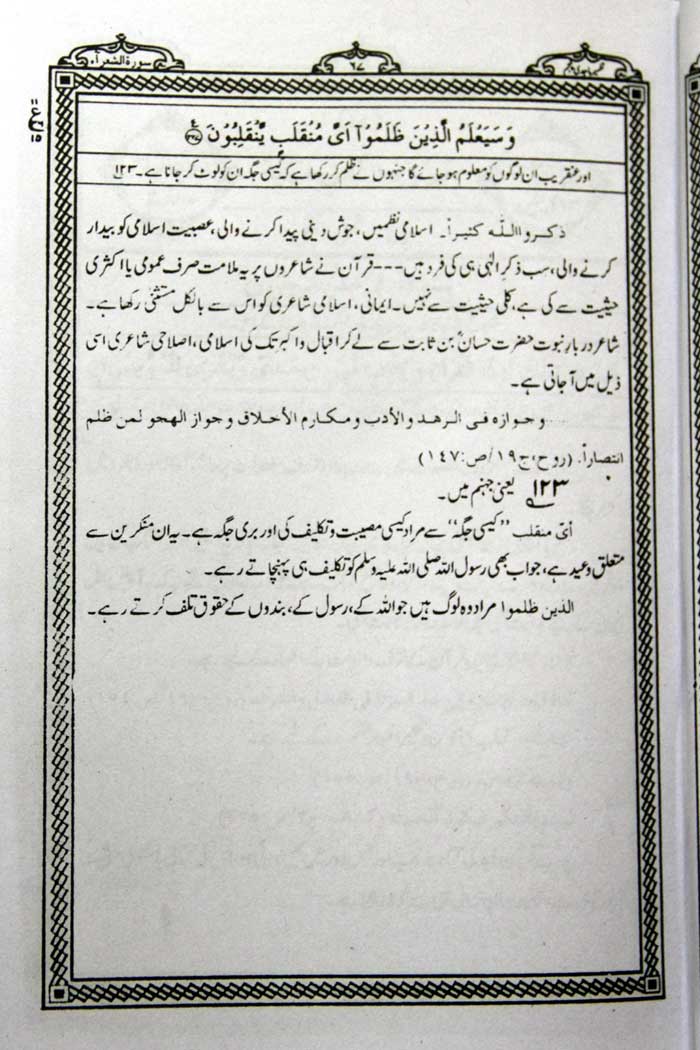 سورة الشعراء
٦٧
وَسَيَعْلَمُ الَّذِيْنَ ظَلَمُوْٓا اَىَّ مُنْقَلَبٍ يَّنْقَلِبُوْنَ
اور عنقریب ان لوگوں کو معلوم ہو جائے گا جنہوں نے ظلم کر رکھا ہے کہ کیسی جگہ ان کو لوٹ کر جانا ہے۔ ۱۲۳
ذکروا اللّٰه کثیراً۔ اسلامی نظمیں، جوش دینی پیدا کرنے والی، عصبیت اسلامی کو بیدار
کرنے والی، سب ذکر الٰہی ہی کی فرد ہیں---قرآن نے شاعروں پر یہ ملامت صرف عمومی یا اکثری
حیثیت سے کی ہے، کلی حیثیت سے نہیں۔ ایمانی، اسلامی شاعری کو اس سے بالکل مستثنیٰ رکھا ہے۔
شاعر دربار نبوت حضرت حسانؓ بن ثابت سے لے کر اقبال واکبر تک کی اسلامی، اصلاحی شاعری اسی
ذیل میں آ جاتی ہے۔
وجوازه فى الزهد والأدب ومكارم الأخلاق وجواز الهجو لمن ظلم
انتصاراً. (روح، ج۱۹/ص:۱۴۷)
۱۲۳ یعنی جہنم میں۔
أیّ منقلب ’’کیسی جگہ‘‘ سے مراد کیسی مصیبت و تکلیف کی اور بری جگہ ہے۔ یہ ان منکرین سے
متعلق وعید ہے، جو اب بھی رسول اللہ صلی اللہ علیہ وسلم کو تکلیف ہی پہنچاتے رہے۔
الذین ظلموا مراد وہ لوگ ہیں جو اللہ کے، رسول کے، بندوں کے حقوق تلف کرتے رہے۔